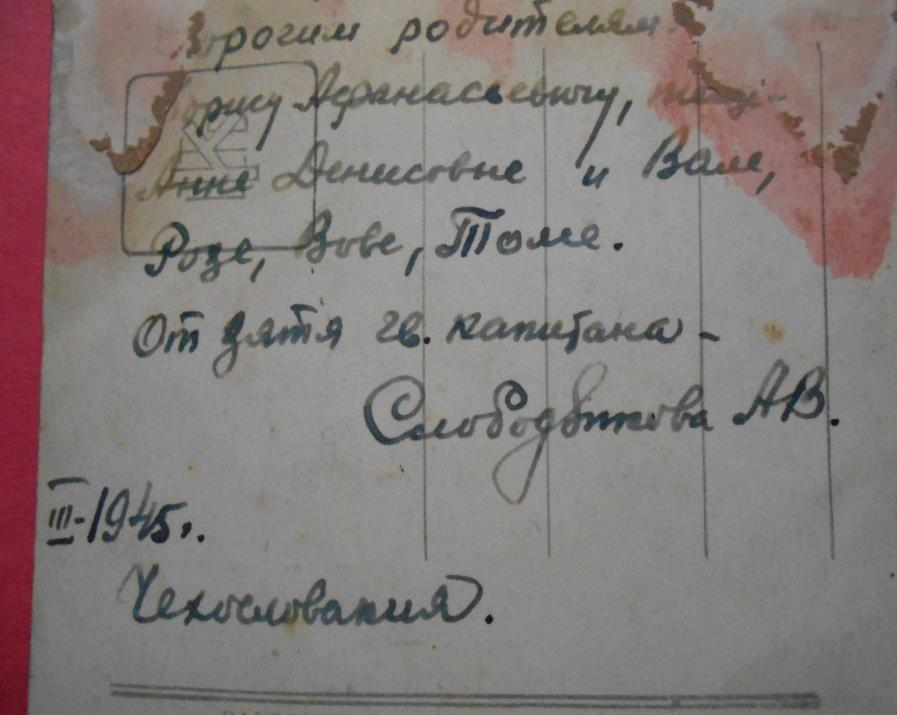 рогим родителям
рису Афанасьевичу,
Анне Денисовне и Вале,
Розе, Вове, Томе.
От зятя гв. капитана –
Слободчикова АВ.
III-1945г.
Чехословакия.